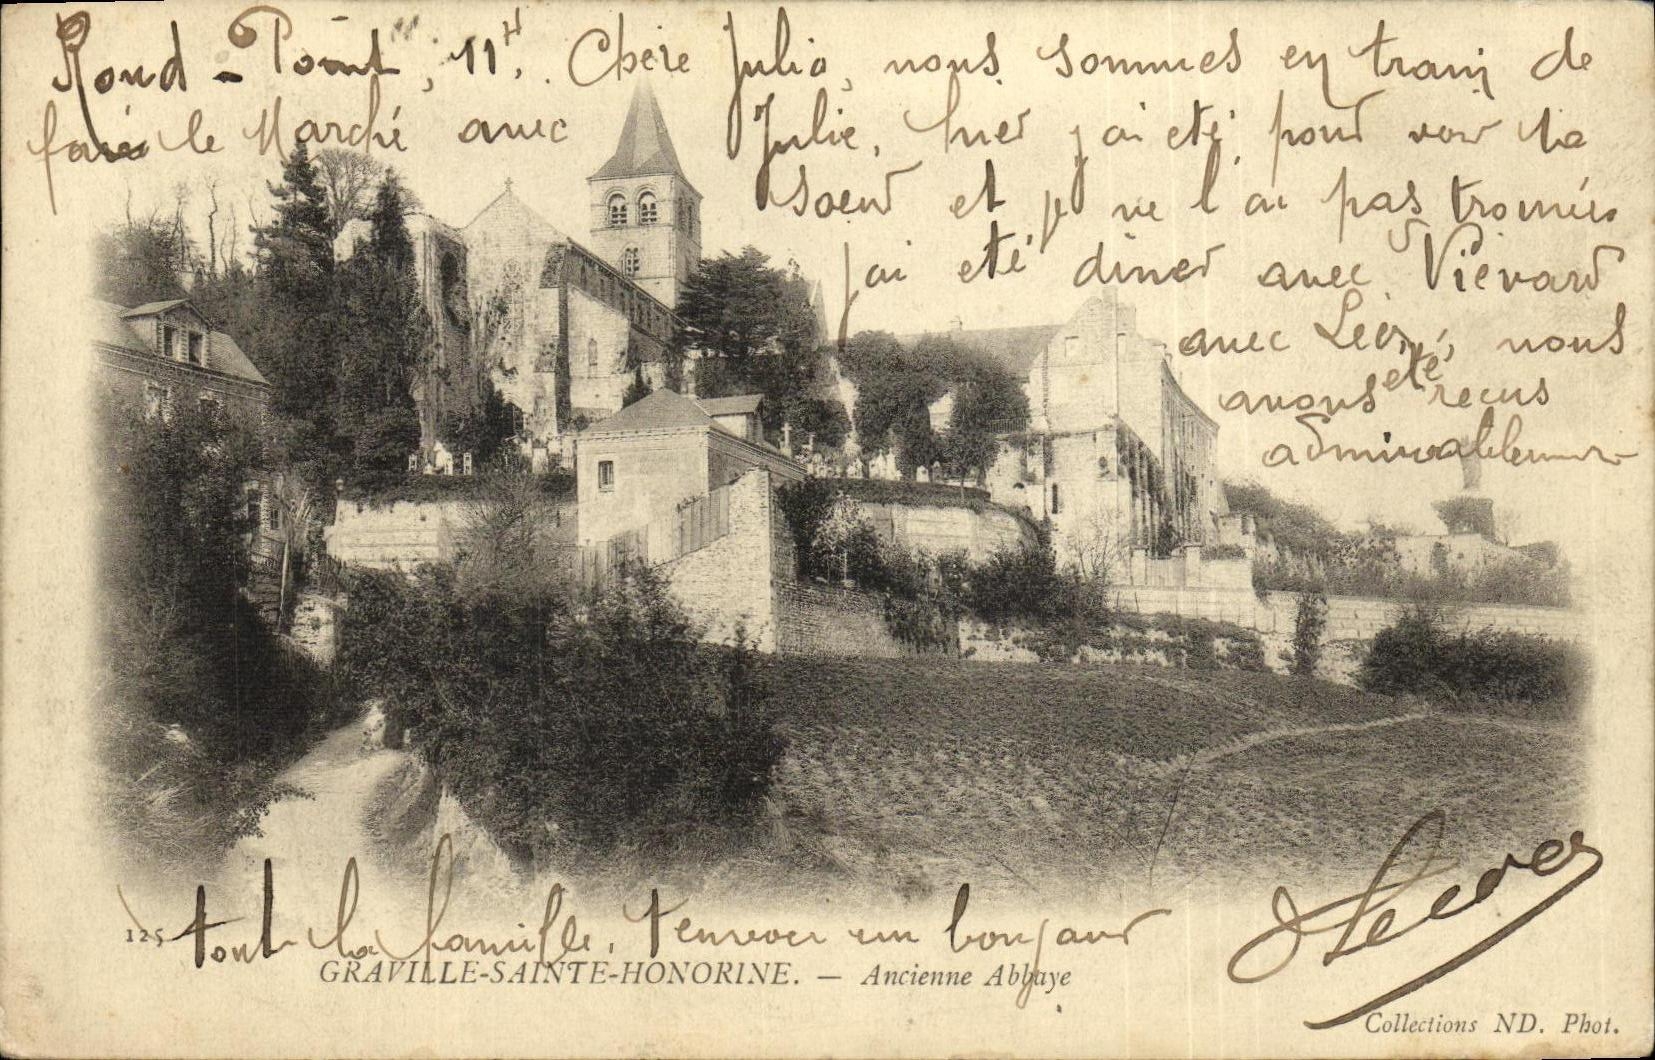 Rond-Point, 11H. Chère Julia, nous sommes en train de
faire le Marché avec Julie, hier j'ai eté pour voir ta
soeur et je ne l'ai pas trouvée
j'ai eté diner avec
avec Léon, nous
avons eté recus
admirablement
tout la famille, t'envoi un bonjour
125
GRAVILLE-SAINTE-HONORINE. — Ancienne Abbaye
Collections ND. Phot.